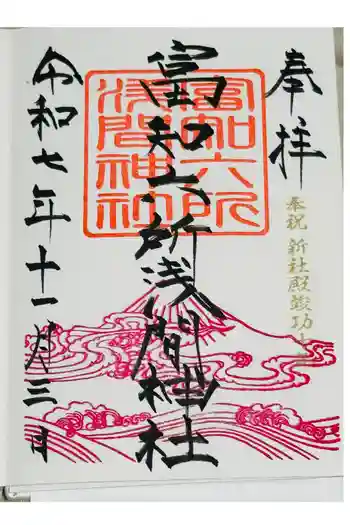 奉拝
奉祝 新社殿竣功
富知六所浅間神社
富知六所
浅間神社
令和七年十一月三日